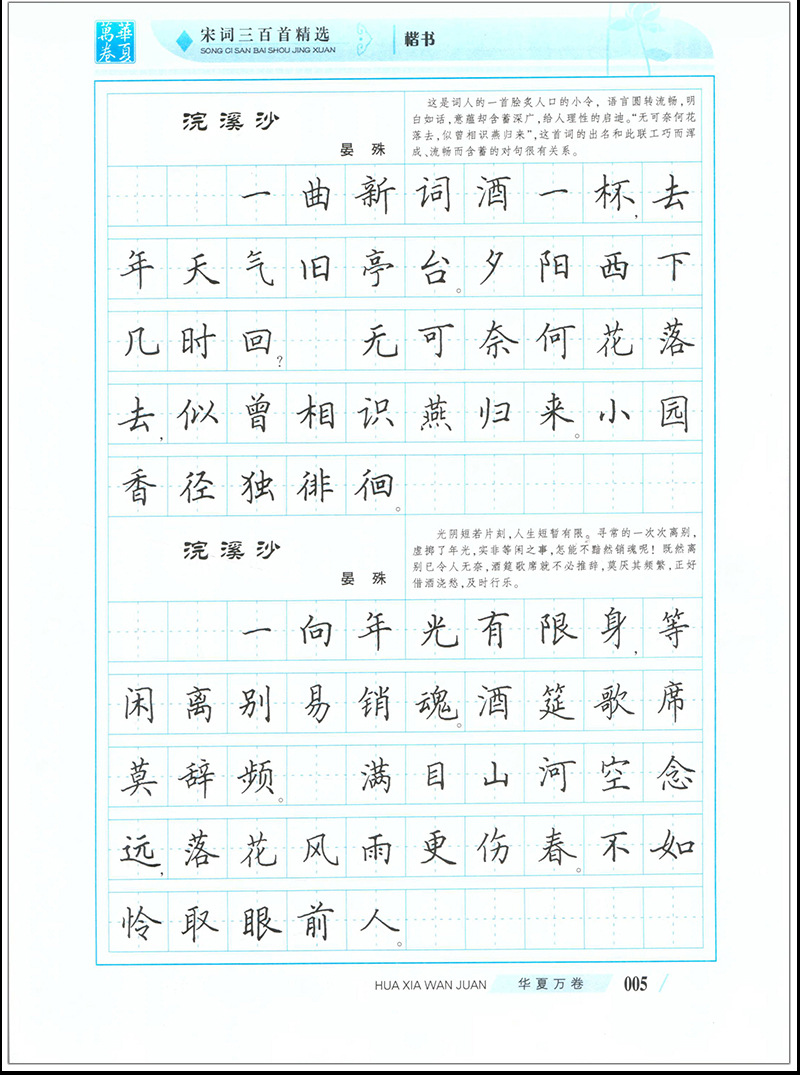 華夏
萬卷
宋词三百首精选
SONG CI SAN BAI SHOU JING XUAN
楷书
浣溪沙
晏 殊
这是词人的一首脍炙人口的小令，语言圆转流畅，明
白如话，意蕴却含蓄深广，给人理性的启迪。“无可奈何花
落去，似曾相识燕归来”，这首词的出名和此联工巧而浑
成、流畅而含蓄的对句很有关系。
一曲新词酒一杯，去
年天气旧亭台。夕阳西下
几时回？ 无可奈何花落
去，似曾相识燕归来。小园
香径独徘徊。
浣溪沙
晏 殊
光阴短若片刻，人生短暂有限。寻常的一次次离别，
虚掷了年光，实非等闲之事，怎能不黯然销魂呢！既然离
别已令人无奈，酒筵歌席就不必推辞，莫厌其频繁，正好
借酒浇愁，及时行乐。
一向年光有限身，等
闲离别易销魂。酒筵歌席
莫辞频。 满目山河空念
远，落花风雨更伤春。不如
怜取眼前人。
HUA XIA WAN JUAN 华夏万卷 005